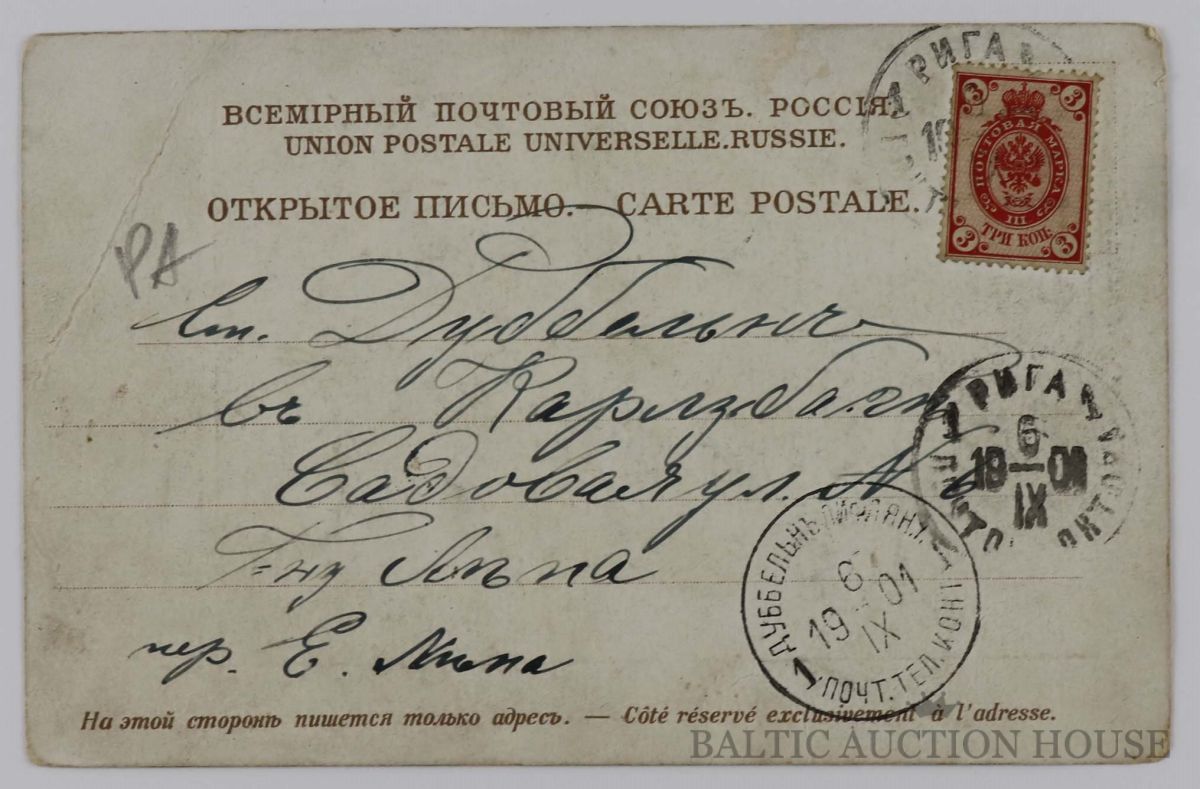 ВСЕМІРНЫЙ ПОЧТОВЫЙ СОЮЗЪ. РОССІЯ.
UNION POSTALE UNIVERSELLE.RUSSIE.
ОТКРЫТОЕ ПИСЬМО. — CARTE POSTALE.
3 3
ПОЧТОВАЯ МАРКА
III
ТРИ КОП.
3 3
1 РИГА 1
РА
ст. Дуббельнъ
въ Карлсбаго
Садовая ул. №
Г-ну
пер. Е.
1 РИГА 1
6
19 — 01
IX
ДУББЕЛЬНЪ ЛИФЛЯНД.
6
19 01
IX
1 ПОЧТ.ТЕЛ.КОНТ.
На этой сторонѣ пишется только адресъ. — Côté réservé exclusivement à l'adresse.
BALTIC AUCTION HOUSE